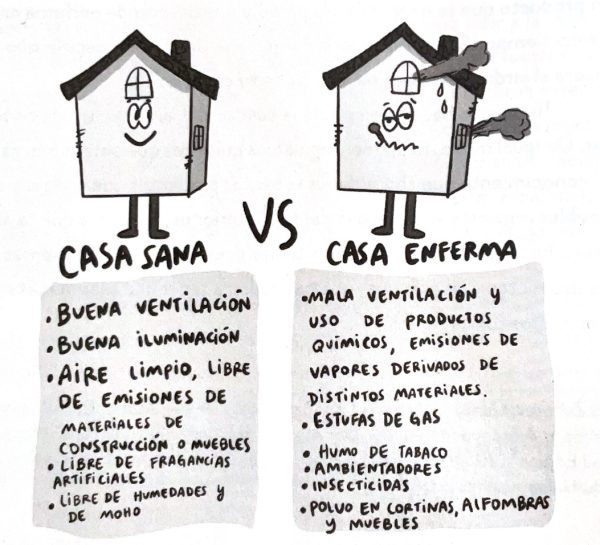 CASA SANA
VS
CASA ENFERMA
• BUENA VENTILACIÓN
• BUENA ILUMINACIÓN
• AIRE LIMPIO, LIBRE
DE EMISIONES DE
MATERIALES DE
CONSTRUCCIÓN O MUEBLES
• LIBRE DE FRAGANCIAS
ARTIFICIALES
• LIBRE DE HUMEDADES Y
DE MOHO
• MALA VENTILACIÓN Y
USO DE PRODUCTOS
QUÍMICOS, EMISIONES DE
VAPORES DERIVADOS DE
DISTINTOS MATERIALES.
• ESTUFAS DE GAS
• HUMO DE TABACO
• AMBIENTADORES
• INSECTICIDAS
• POLVO EN CORTINAS, ALFOMBRAS
Y MUEBLES